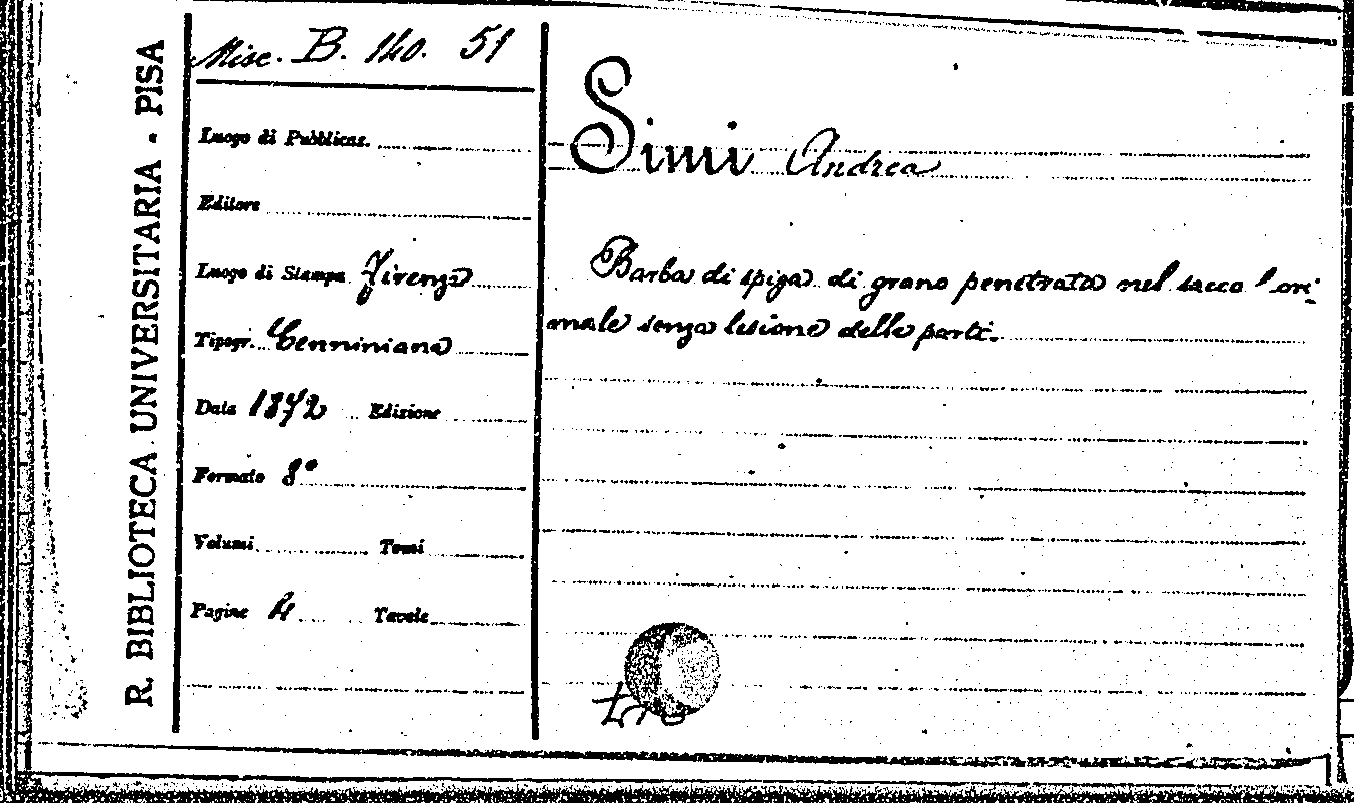 R. BIBLIOTECA UNIVERSITARIA - PISA
Misc. B. 140. 51
Luogo di Pubblicaz.
Editore
Luogo di Stampa Firenze
Tipogr. Cenniniana
Data 1872 Edizione
Formato 8°
Volumi Tomi
Pagine 4 Tavole
Simi Andrea
Barba di spiga di grano penetrata nel sacco lori-
male senza lesione delle parti.